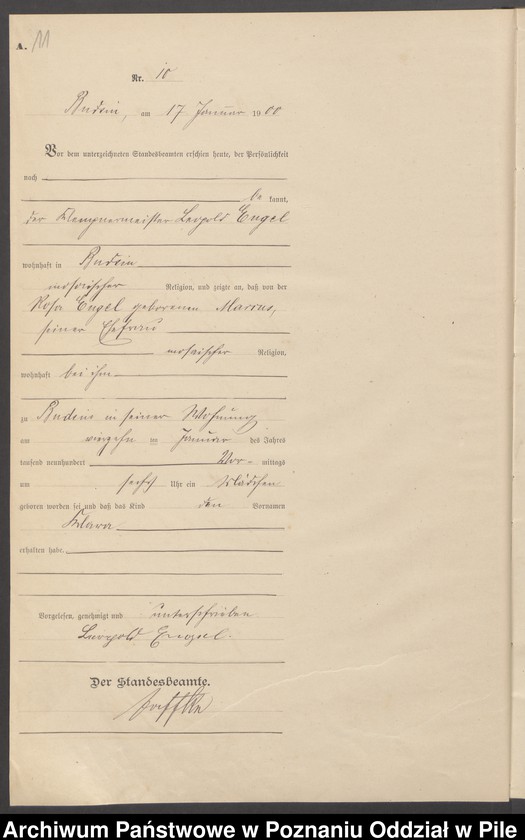 A. 11
Nr. 10
Budsin, am 17 Januar 1900
Vor dem unterzeichneten Standesbeamten erschien heute, der Persönlichkeit
nach
be kannt,
der Klempnermeister Leopold Engel
wohnhaft in Budsin
mosaischer Religion, und zeigte an, daß von der
Rosa Engel geborenen Marcus,
seiner Ehefrau
mosaischer Religion,
wohnhaft bei ihm
zu Budsin in seiner Wohnung
am vierzehn ten Januar des Jahres
tausend neunhundert Vor- mittags
um sechs Uhr ein Mädchen
geboren worden sei und daß das Kind den Vornamen
Klara
erhalten habe.
Vorgelesen, genehmigt und unterschrieben
Leopold Engel.
Der Standesbeamte.
Archiwum Państwowe w Poznaniu Oddział w Pile